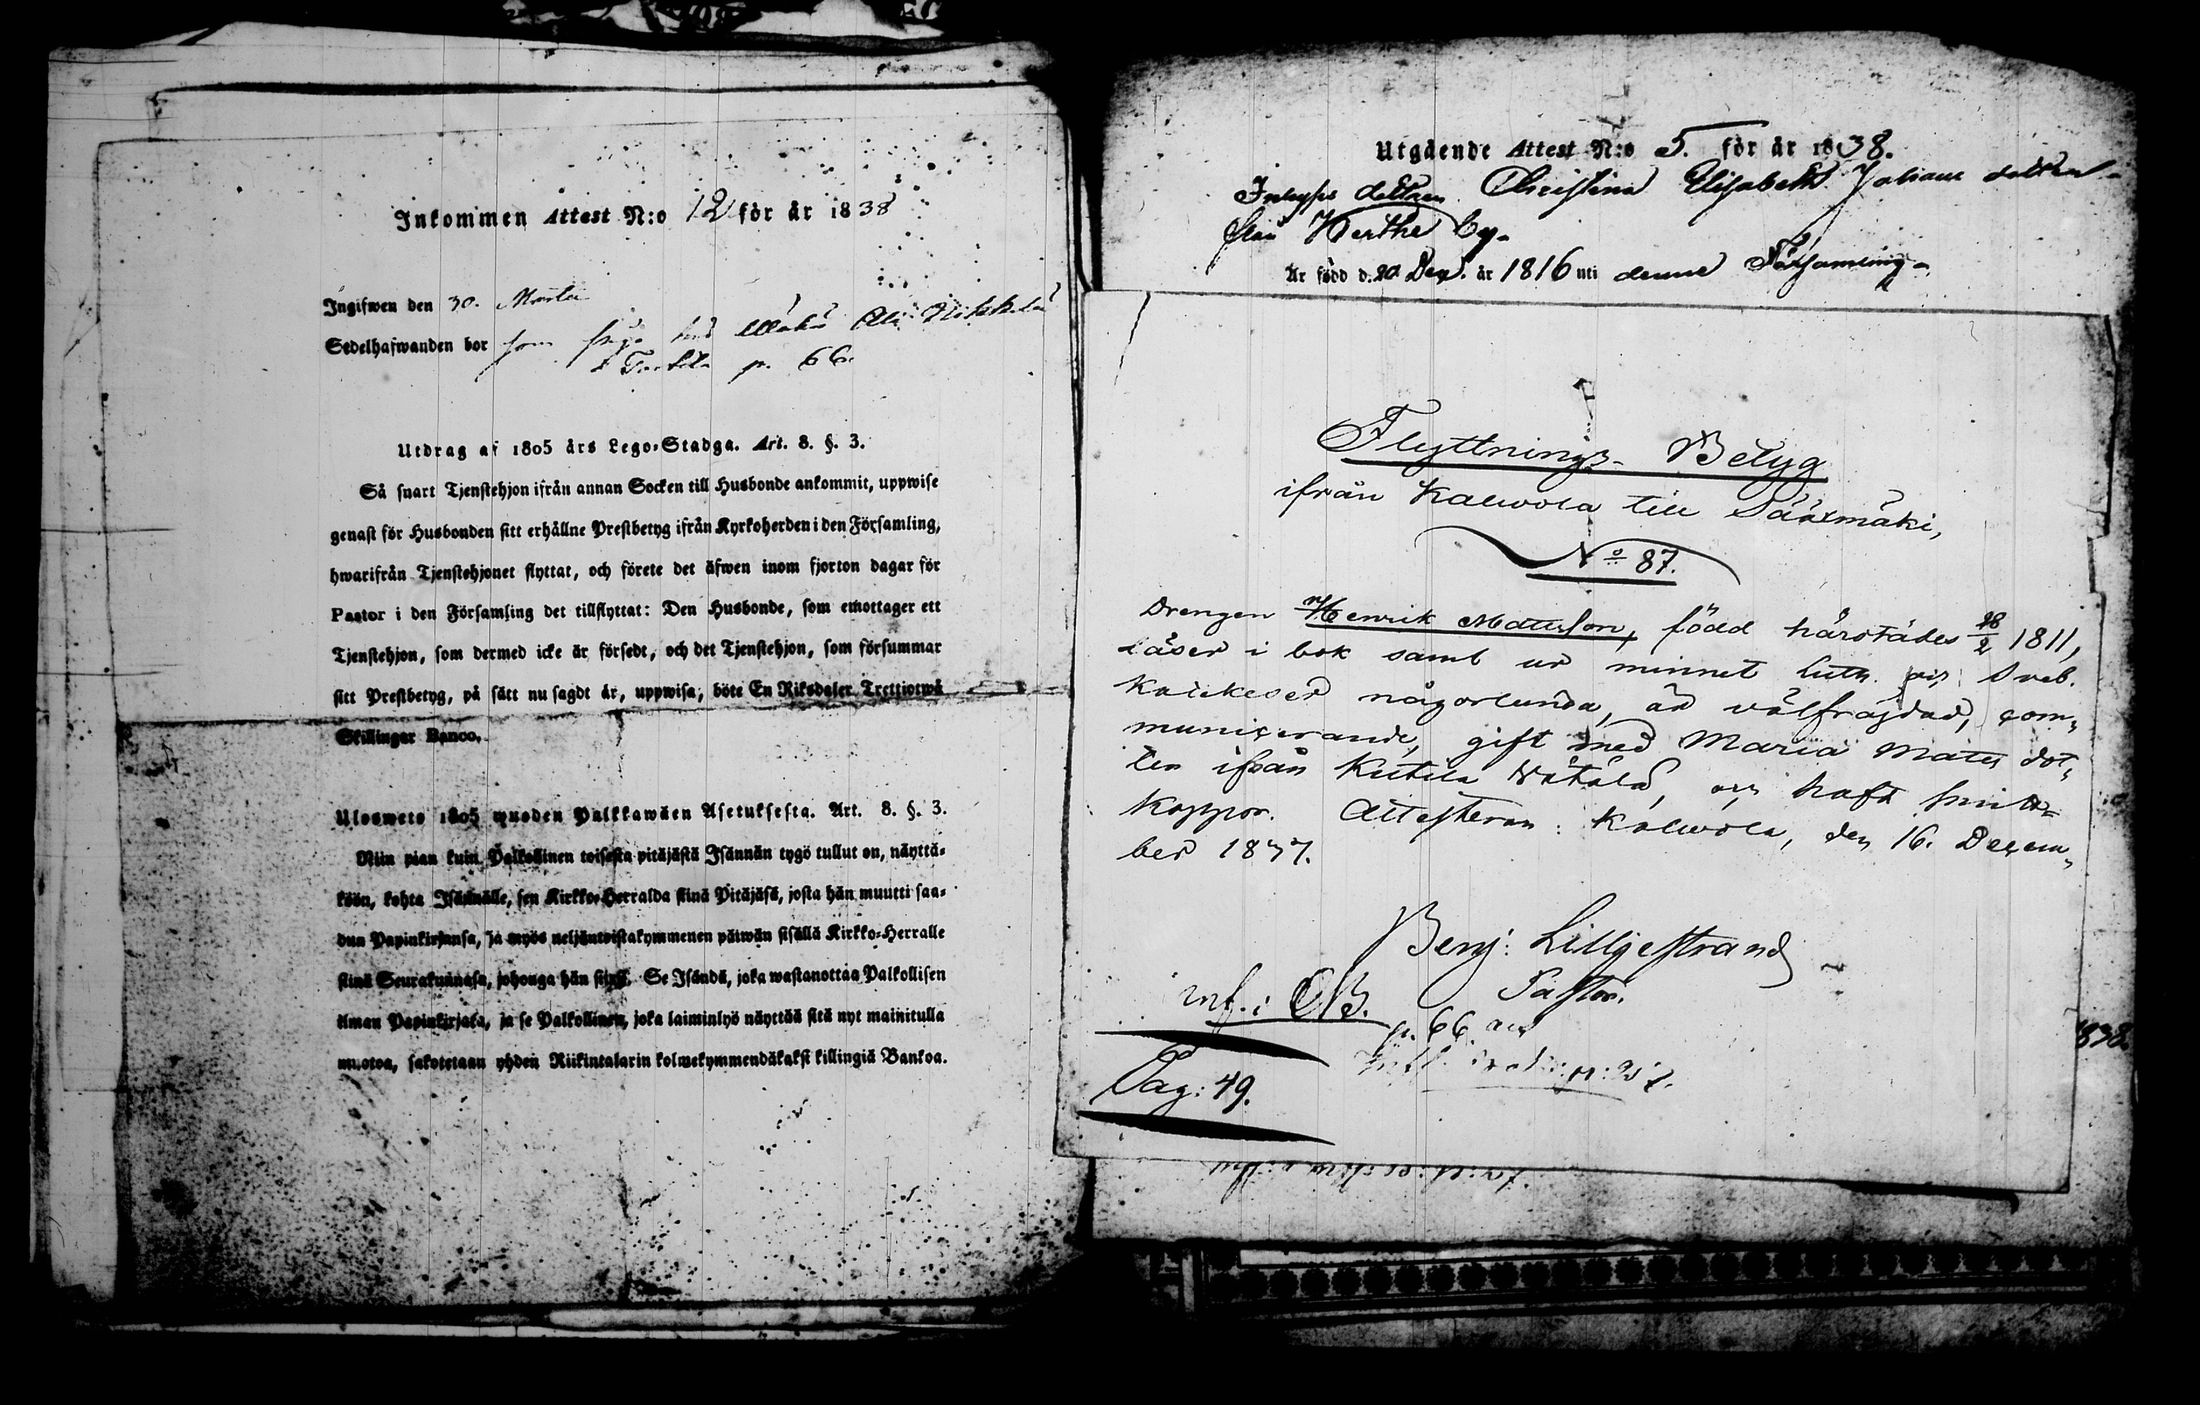 Inkommen Attest N:o 12 för år 1838
Ingifwen den 30. Martii
Sedelhafwanden bor som
p. 66.
Utdrag af 1805 års Lego-Stadga. Art. 8. §. 3.
Så snart Tjenstehjon ifrån annan Socken till Husbonde ankommit, uppwise
genast för Husbonden sitt erhållne Prestbetyg ifrån Kyrkoherden i den Församling,
hwarifrån Tjenstehjonet flyttat, och förete det äfwen inom fjorton dagar för
Pastor i den Församling det tillflyttat: Den Husbonde, som emottager ett
Tjenstehjon, som dermed icke är försedt, och det Tjenstehjon, som försummar
sitt Prestbetyg, på sätt nu sagdt är, uppwisa, böte En Riksdaler Trettiotwå
Skillingar Banco.
Ulosweto 1805 wuoden Palkkawäen Asetuksesta. Art. 8. §. 3.
Niin pian kuin Palkollinen toisesta pitäjästä Isännän tygö tullut on, näyttä-
köön, kohta Isännälle, sen Kirkko-Herralda siinä Pitäjäsä, josta hän muutti saa-
dun Papinkirjansa, ja myös neljäntoistakymmenen päiwän sisällä Kirkko-Herralle
siinä Seurakunnasa, johonga hän siirsi. Se Isändä, joka wastanottaa Palkollisen
ilman Papinkirjata, ja se Palkollinen, joka laiminlyö näyttää sitä nyt mainitulla
muotoa, sakotetaan yhden Riikintalarin kolmekymmendäkaksi killingiä Bankoa.
Utgående Attest N:o 5. för år 1838.
Inhyses dottren Christina Elisabeth Johans dotter
från by.
Är född d. 20 Dec. år 1816 uti denne Församling
Flyttnings-Betyg
ifrån Kalwola till Sääxmäki,
No 87.
Drengen Henrik Mattsson, född härstädes 28/2 1811,
läser i bok samt ur minnet Luth. och Sveb.
Katekeser någorlunda, är välfräjdad, com-
municerande, gift med Maria Mats dot-
ter ifrån Kutila, och haft smitt-
koppor. Attesteras: Kalwola, den 16. Decem-
ber 1837.
Benj: Lilljestrand
Pastor.
inf. i CB.
p. 66
Pag: 49.
1838.